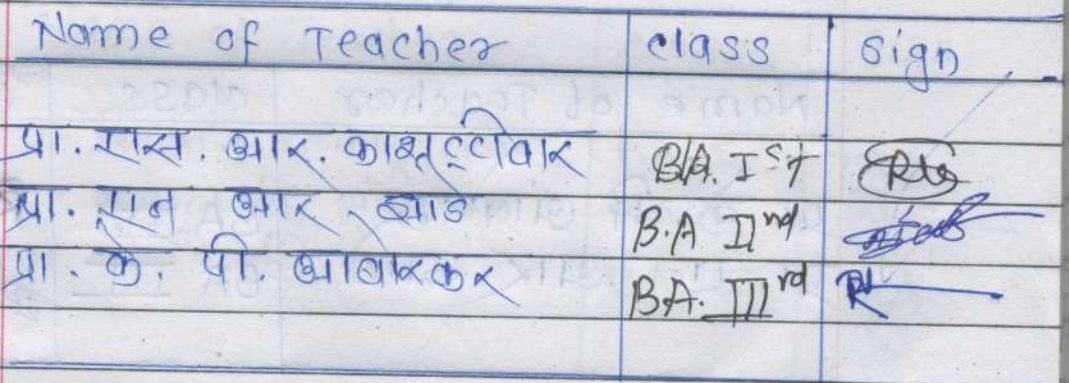 Name of Teacher class sign
प्रा. एस. आर. B.A. Ist
प्रा. एन आर झाडे B.A IInd
प्रा. के. पी. आवारकर B.A. IIIrd